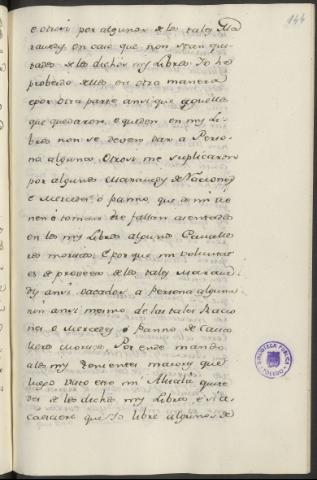 144
e otrosi por algunos de los tales Ma
ravedy, en caso que non sean qui
tados de los dichos my Libros Yo he
probeido dellos en otra manera
e por otra parte ansi que aquellos
que quedaron, e queden en my Li
bros non se deven dar a Perso
na alguna. Otrosi me suplicaron
por algunos maravedy de Raciones
e Mercedes, o panno, que de mi tie
nen e tomaron fallan asentados
en los my Libros algunos Cavalle
ros moriscos: E por que mi voluntat
es de proveer de los tales Maraue
dy ansi vacados, a persona alguna
nin ansi mesmo de las tales Racio
nes o Mercedy, o panno de Cava
llero morisco. Por ende mando
a los my Contadores mayores que
luego vista esta mi Alvala quiten
de los dichos my Libros, e si a
caesciere que Yo libre algunos de
BIBLIOTECA PUBLICA
TOLEDO